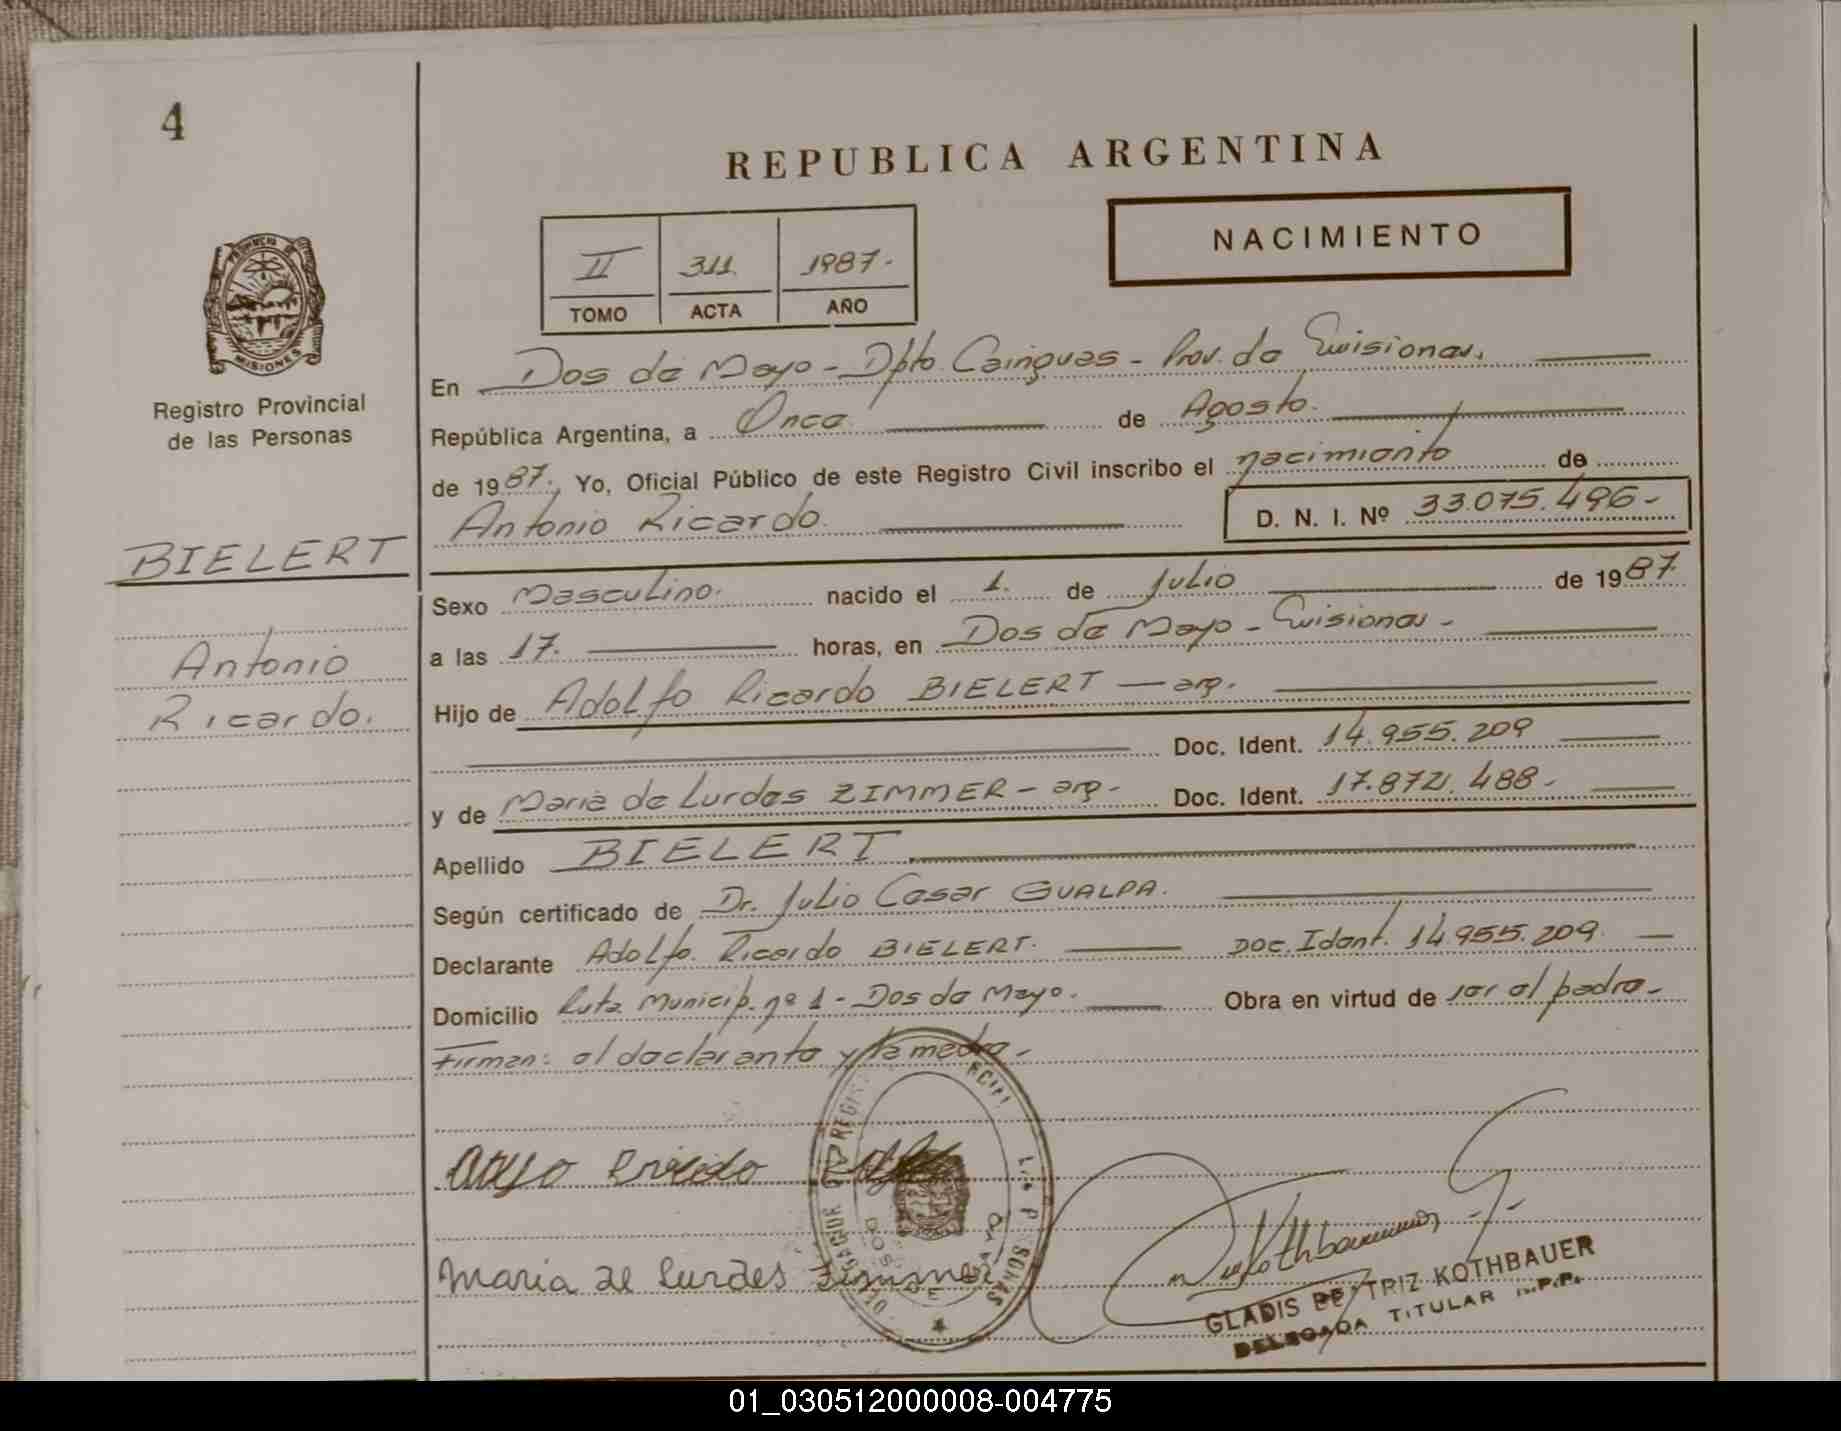 4
REPUBLICA ARGENTINA
NACIMIENTO
II 311. 1987.-
TOMO ACTA AÑO
PROVINCIA DE
MISIONES
Registro Provincial
de las Personas
En Dos de Mayo - Dpto. Cainguas - Prov. de Misiones.
República Argentina, a Once de Agosto.
de 1987. Yo, Oficial Público de este Registro Civil inscribo el nacimiento de
Antonio Ricardo. D. N. I. Nº 33.075.496-
BIELERT
Antonio
Ricardo.
Sexo Masculino. nacido el 1. de Julio de 1987.
a las 17. horas, en Dos de Mayo - Misiones -
Hijo de Adolfo Ricardo BIELERT — arg.
Doc. Ident. 14.955.209
y de Maria de Lurdes ZIMMER - arg - Doc. Ident. 17.872.488-
Apellido BIELERT
Según certificado de Dr. Julio Cesar GUALPA.
Declarante Adolfo Ricardo BIELERT. Doc. Ident. 14.955.209.
Domicilio Ruta Municip. nº 1 - Dos de Mayo. Obra en virtud de ser el padre -
Firman: el declarante y la madre -
Maria de Lurdes Zimmer
GLADIS BEATRIZ KOTHBAUER
DELEGADA TITULAR
01_030512000008-004775